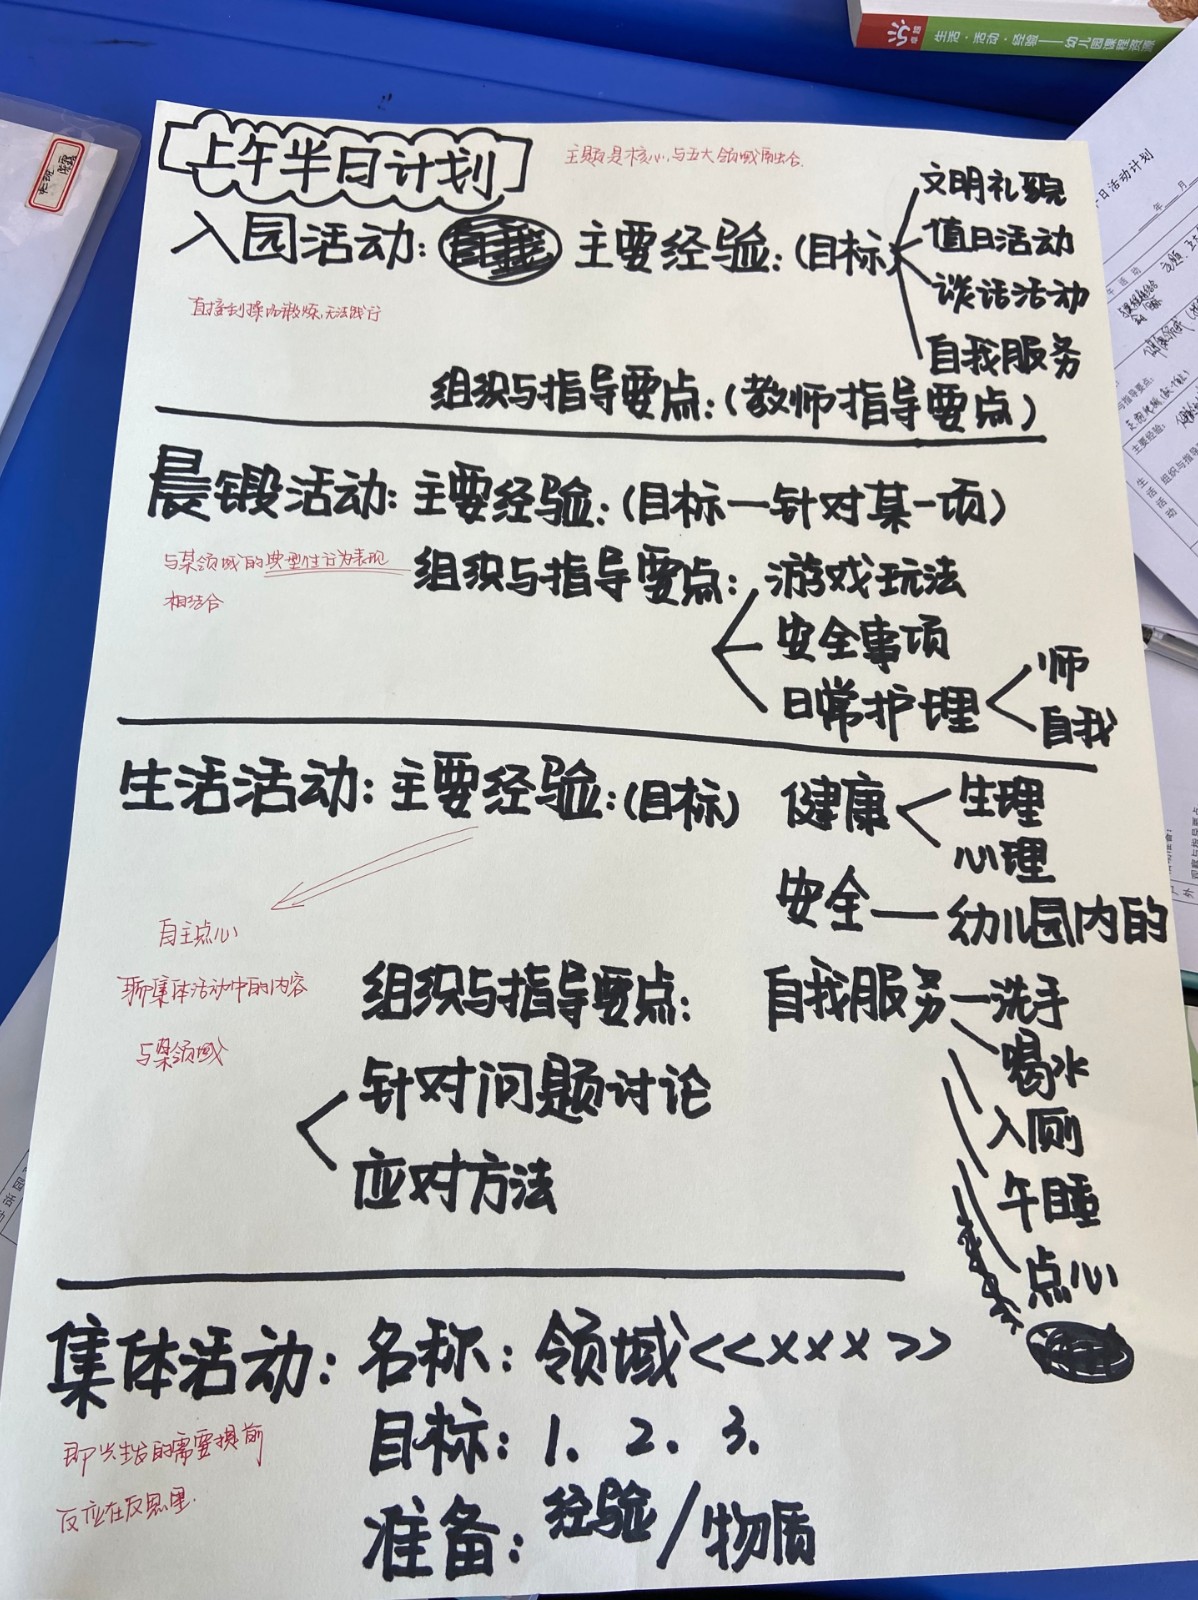 生活·活动·经验——幼儿园课程资源
上午半日计划
主题是核心,与五大领域融合.
入园活动: 主要经验:(目标)
文明礼貌
值日活动
谈话活动
自我服务
组织与指导要点:(教师指导要点)
晨锻活动: 主要经验:(目标—针对某一项)
与某领域的典型性行为表现
相结合
组织与指导要点: 游戏玩法
安全事项
日常护理
师
自我
生活活动: 主要经验:(目标)
健康
生理
心理
安全—幼儿园内的
自主点心
聊集体活动中的内容
与某领域
组织与指导要点:
自我服务—洗手
喝水
入厕
午睡
点心
针对问题讨论
应对方法
集体活动: 名称: 领域<<×××>>
目标: 1. 2. 3.
准备: 经验/物质
即兴生发的需要提前
反应在反思里.
日活动计划
年 月
主要经验:
生活活动